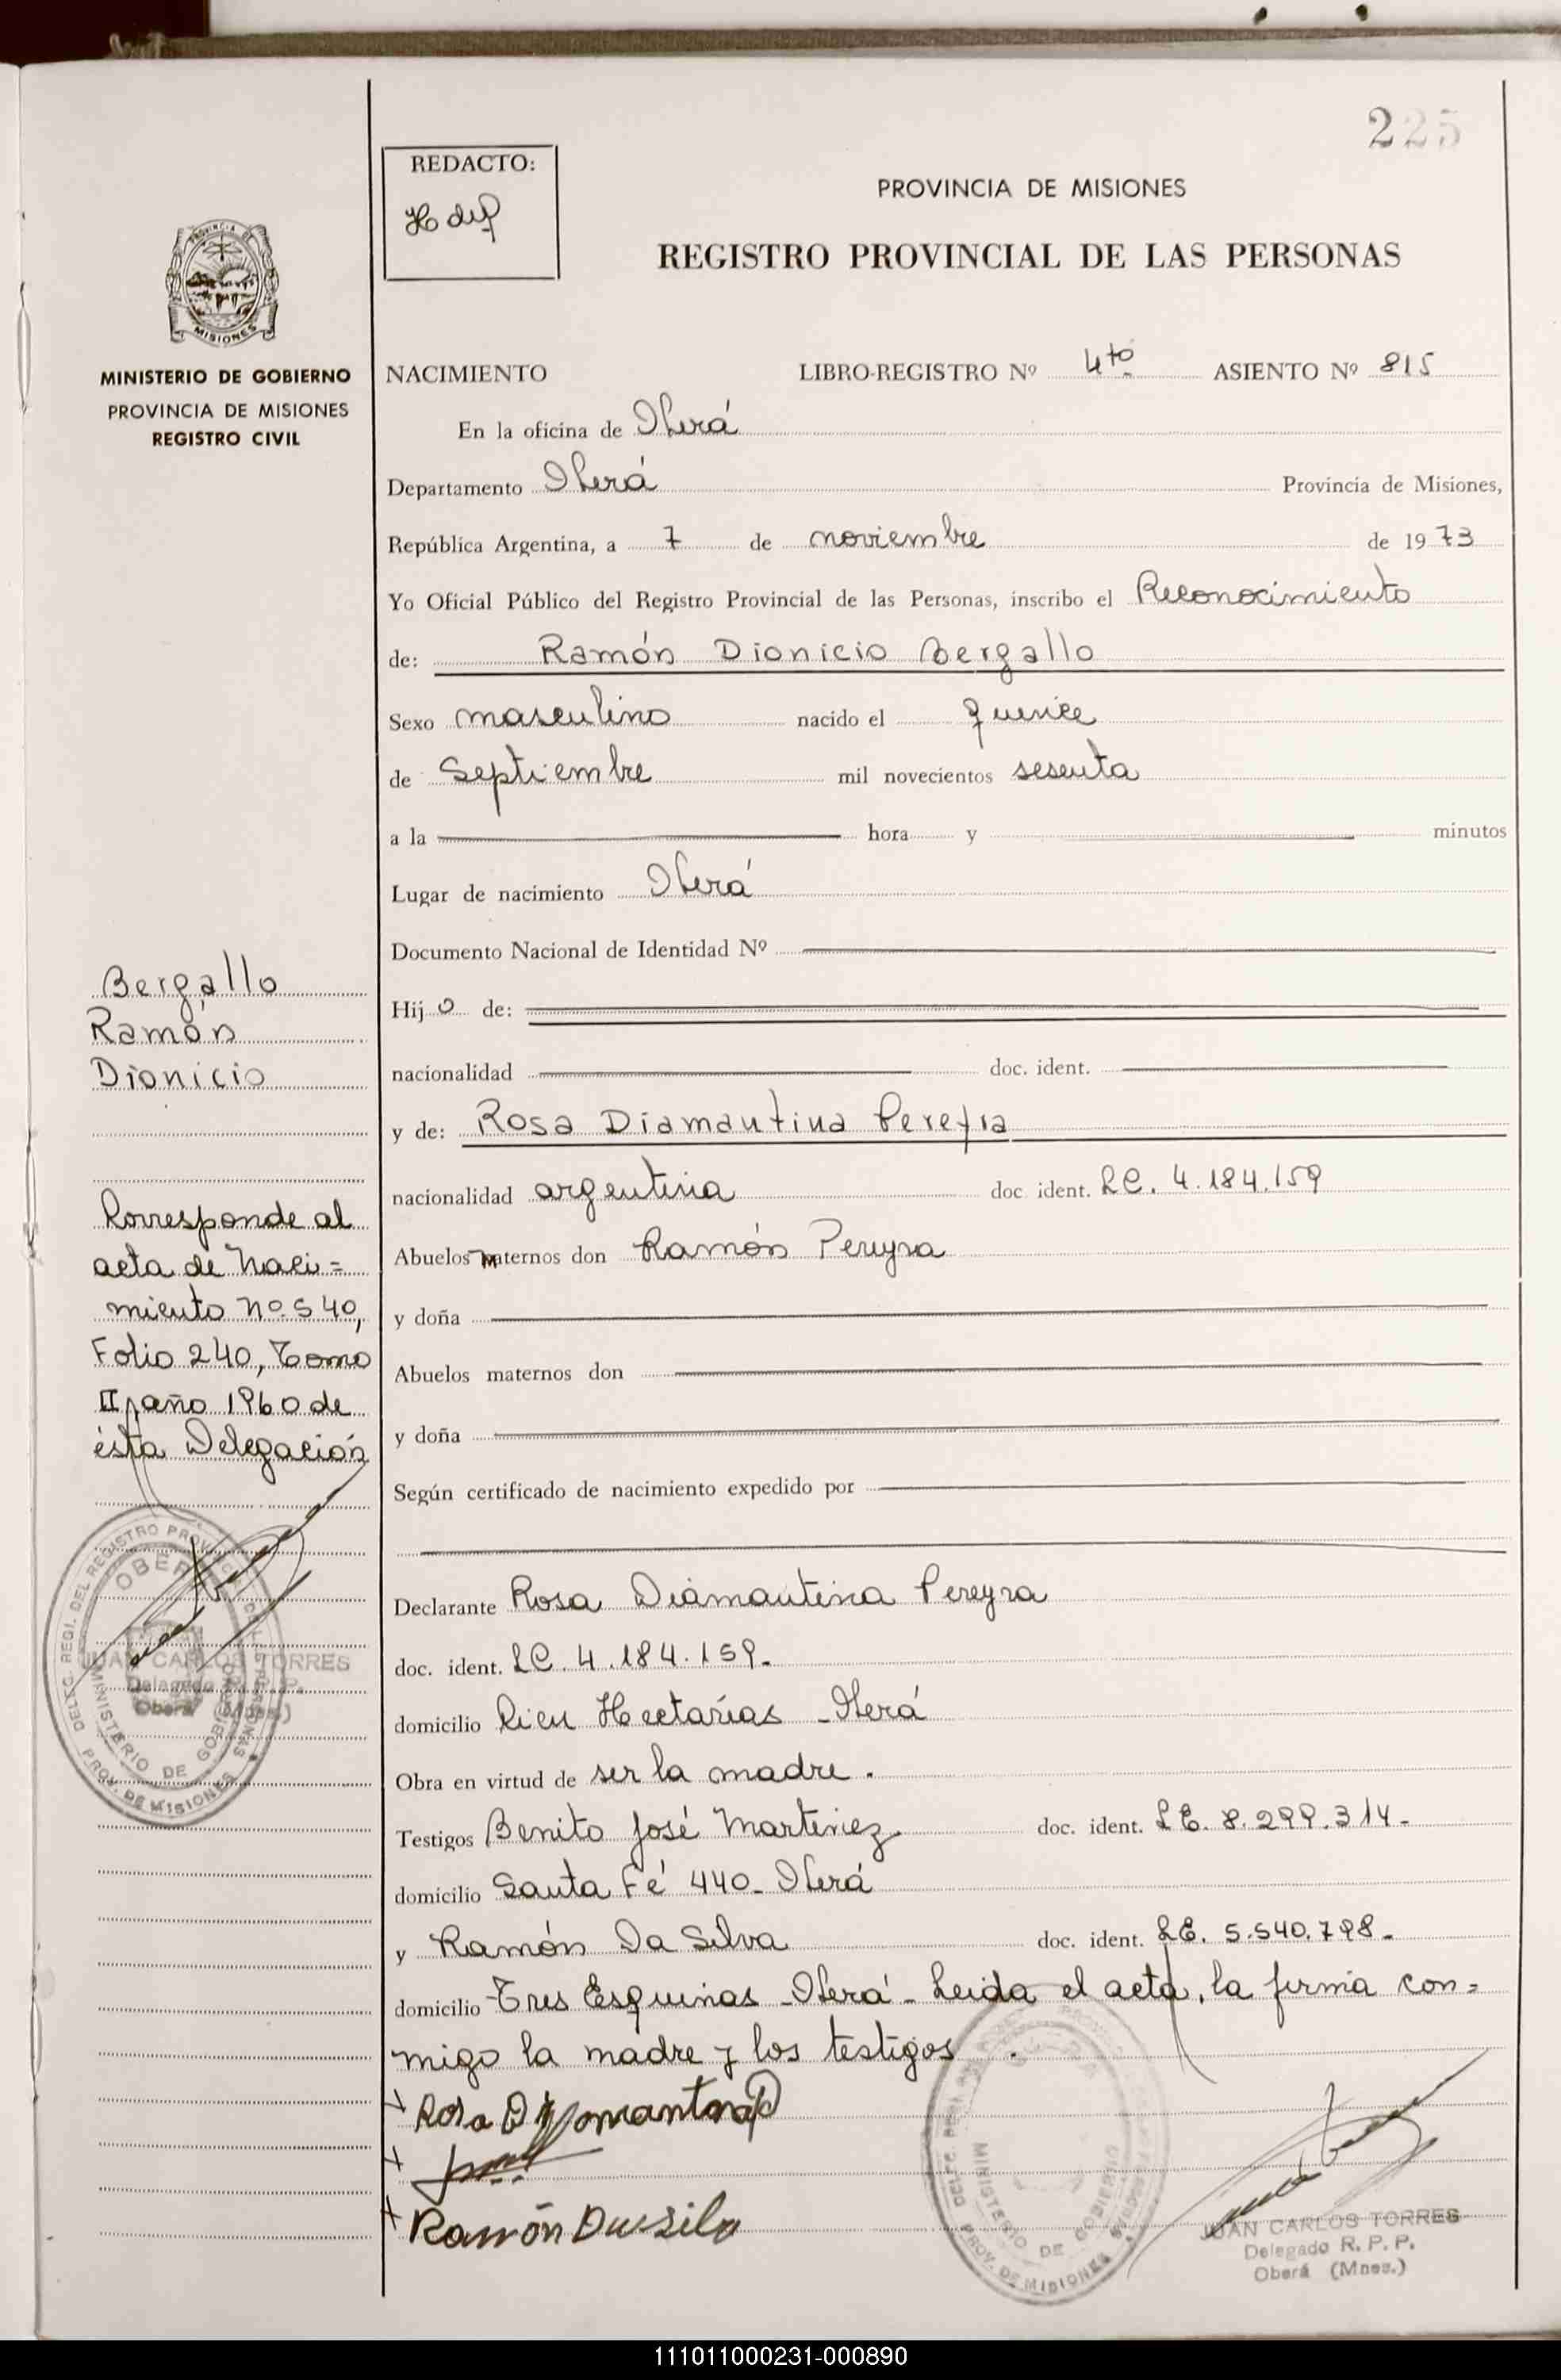 225
REDACTO:
PROVINCIA DE MISIONES
REGISTRO PROVINCIAL DE LAS PERSONAS
PROVINCIA DE
MISIONES
MINISTERIO DE GOBIERNO
PROVINCIA DE MISIONES
REGISTRO CIVIL
NACIMIENTO LIBRO-REGISTRO Nº 4to ASIENTO Nº 815
En la oficina de Oberá
Departamento Oberá Provincia de Misiones,
República Argentina, a 7 de noviembre de 1973
Yo Oficial Público del Registro Provincial de las Personas, inscribo el Reconocimiento
de: Ramón Dionicio Bergallo
Sexo masculino nacido el quince
de Septiembre mil novecientos sesenta
a la hora y minutos
Lugar de nacimiento Oberá
Documento Nacional de Identidad Nº
Hijo de:
nacionalidad doc. ident.
y de: Rosa Diamantina Pereyra
nacionalidad argentina doc. ident. LC. 4.184.159
Abuelos Maternos don Ramón Pereyra
y doña
Abuelos maternos don
y doña
Según certificado de nacimiento expedido por
Declarante Rosa Diamantina Pereyra
doc. ident. LC. 4.184.159.
domicilio Cien Hectarias - Oberá
Obra en virtud de ser la madre.
Testigos Benito José Martinez doc. ident. LE. 8.299.314-
domicilio Santa Fé 440- Oberá
y Ramón Da Silva doc. ident. LE. 5.540.798-
domicilio Tres Esquinas - Oberá - Leida el acta, la firma con=
migo la madre y los testigos.
Ramón Da Silva
JUAN CARLOS TORRES
Delegado R. P. P.
Oberá (Mnes.)
Bergallo
Ramón
Dionicio
Corresponde al
acta de Naci=
miento Nº 540,
Folio 240, Tomo
II, año 1960 de
ésta Delegación
DELEG. REGI. DEL REGISTRO PROVINCIAL DE LAS PERSONAS
OBERÁ
MINISTERIO DE GOBIERNO
PROV. DE MISIONES
JUAN CARLOS TORRES
Delegado R. P. P.
Oberá (Mnes.)
MINISTERIO DE GOBIERNO
PROV. DE MISIONES
111011000231-000890